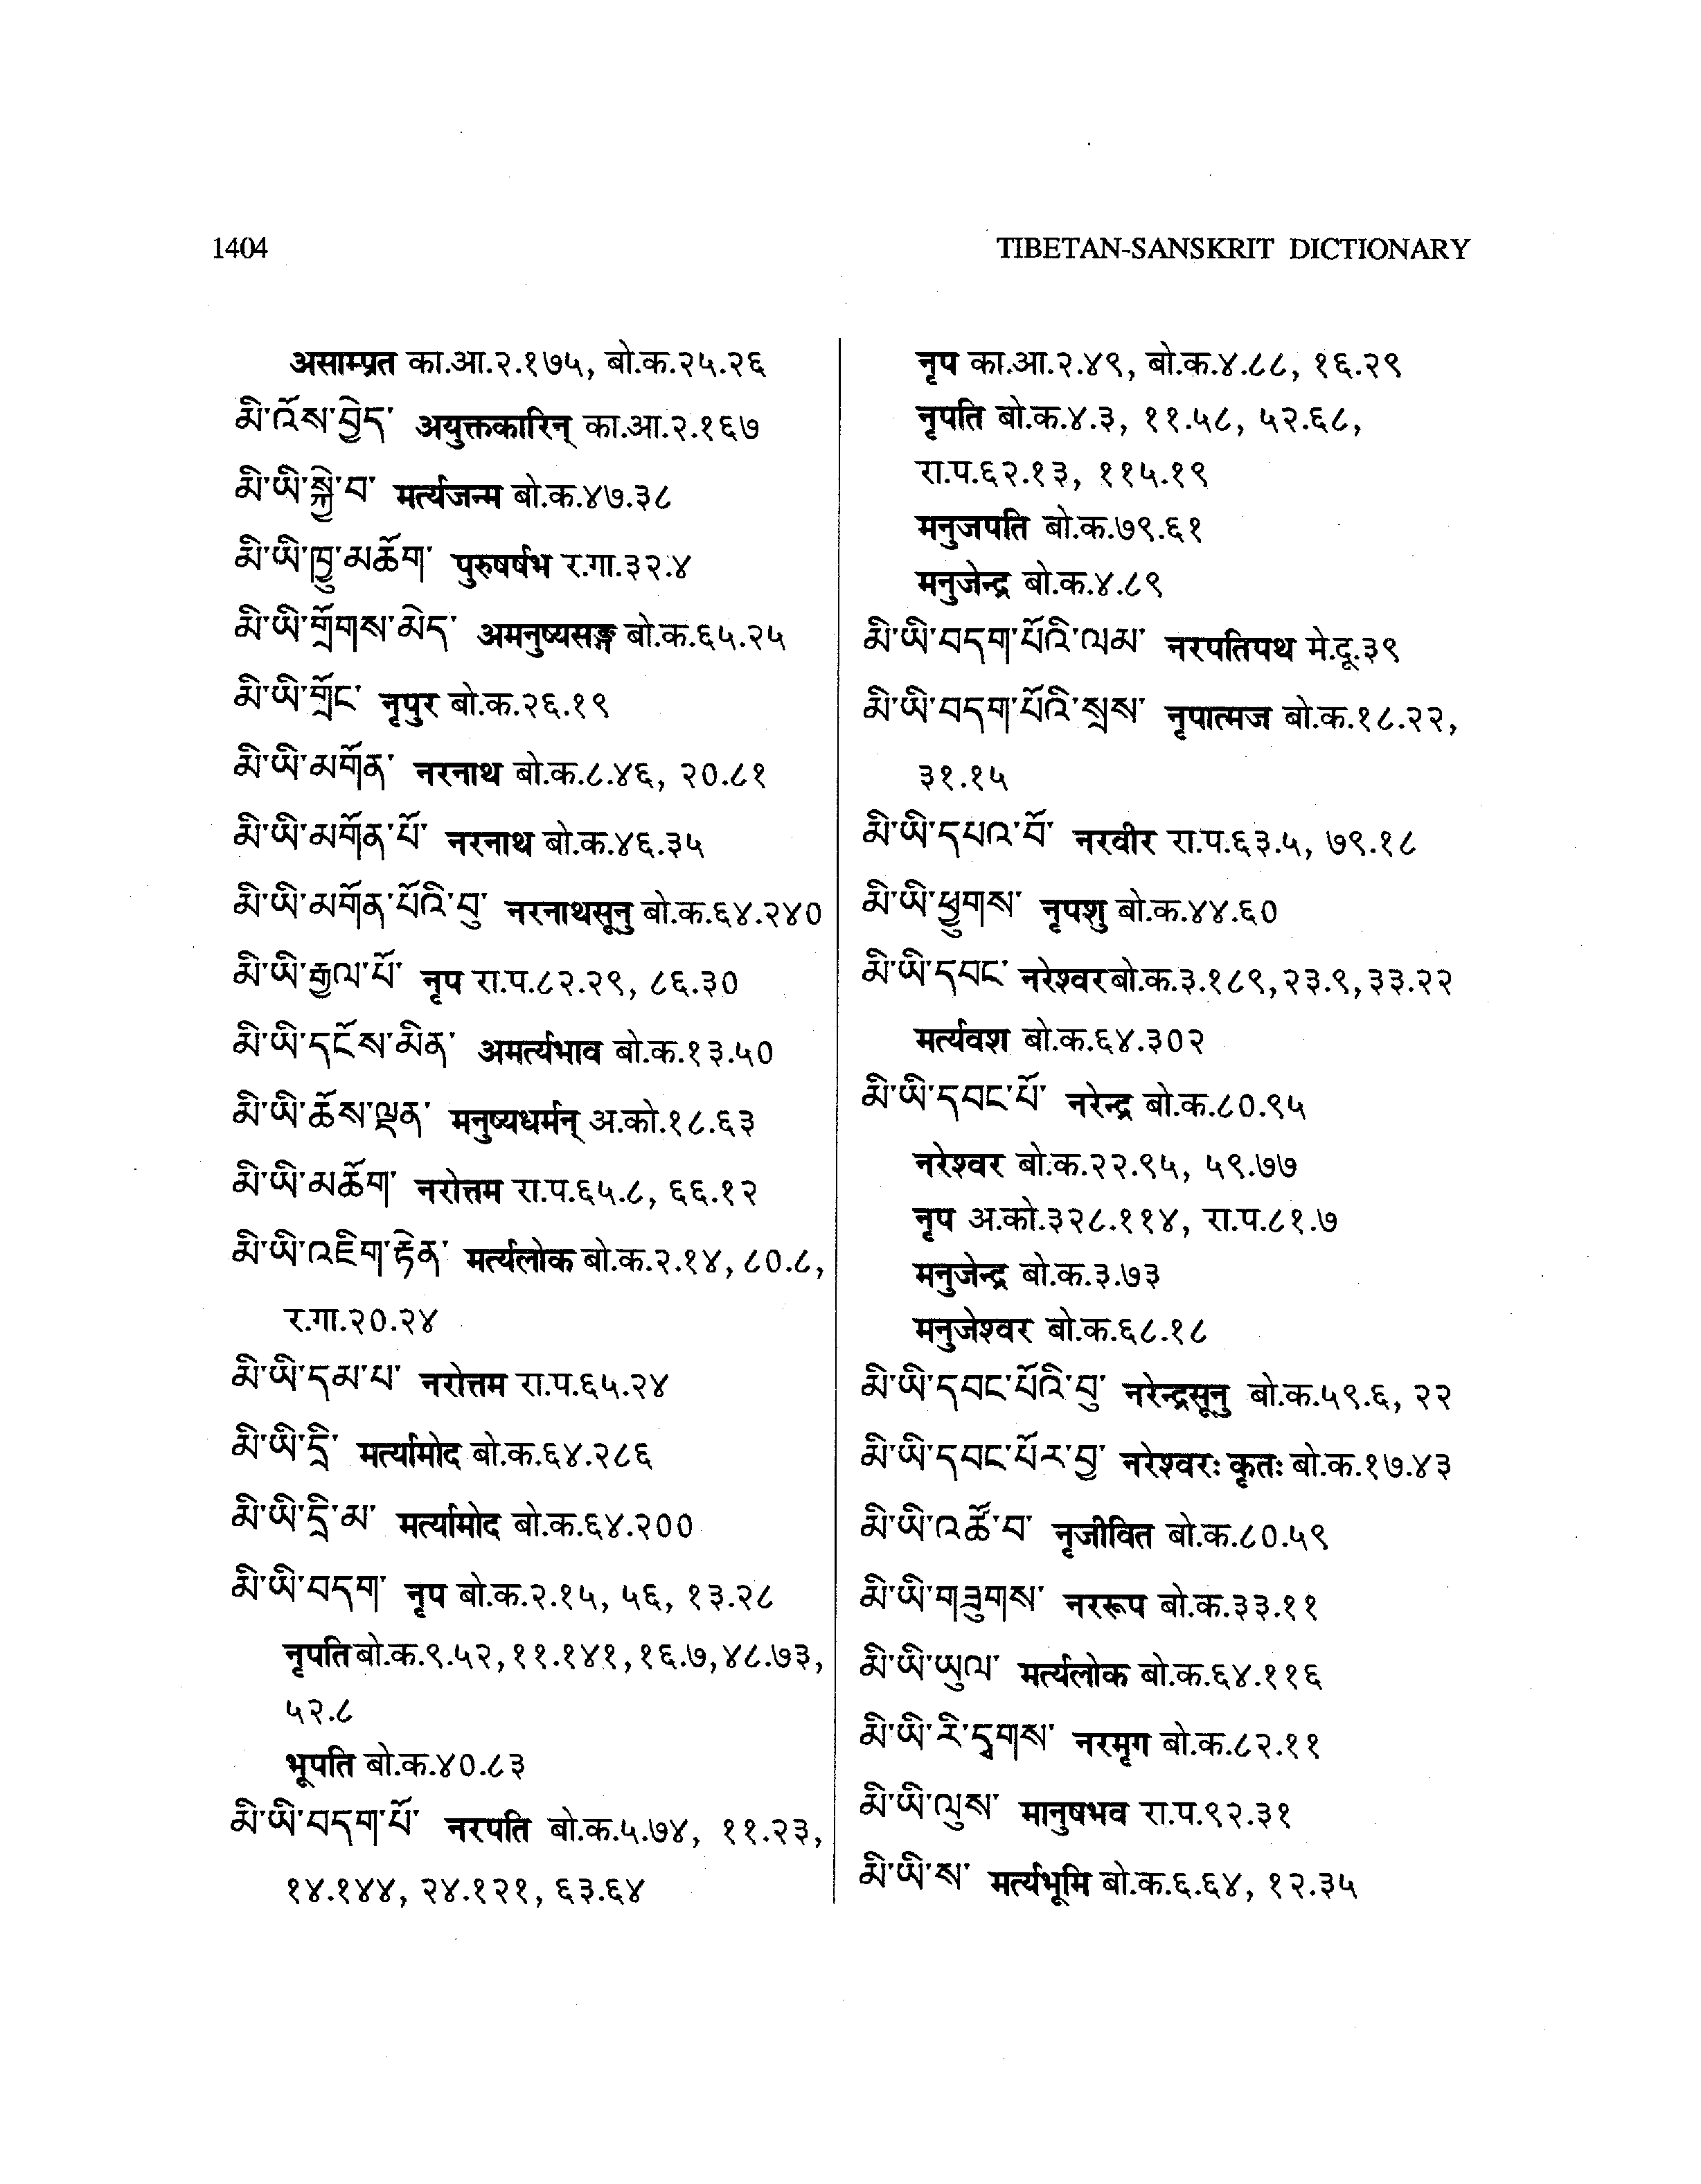 1404
TIBETAN-SANSKRIT DICTIONARY
असाम्प्रत का.आ.२.१७५, बो.क.२५.२६
མི་འོས་བྱེད་ अयुक्तकारिन् का.आ.२.१६७
མི་ཡི་སྐྱེ་བ་ मर्त्यजन्म बो.क.४७.३८
མི་ཡི་ཁྱུ་མཆོག་ पुरुषर्षभ र.गा.३२.४
མི་ཡི་གྲོགས་མེད་ अमनुष्यसङ्ग बो.क.६५.२५
མི་ཡི་གྲོང་ नृपुर बो.क.२६.१९
མི་ཡི་མགོན་ नरनाथ बो.क.८.४६, २०.८१
མི་ཡི་མགོན་པོ་ नरनाथ बो.क.४६.३५
མི་ཡི་མགོན་པོའི་བུ་ नरनाथसूनु बो.क.६४.२४०
མི་ཡི་རྒྱལ་པོ་ नृप रा.प.८२.२९, ८६.३०
མི་ཡི་དངོས་མིན་ अमर्त्यभाव बो.क.१३.५०
མི་ཡི་ཆོས་ལྡན་ मनुष्यधर्मन् अ.को.१८.६३
མི་ཡི་མཆོག་ नरोत्तम रा.प.६५.८, ६६.१२
མི་ཡི་འཇིག་རྟེན་ मर्त्यलोक बो.क.२.१४, ८०.८,
र.गा.२०.२४
མི་ཡི་དམ་པ་ नरोत्तम रा.प.६५.२४
མི་ཡི་དྲི་ मर्त्यामोद बो.क.६४.२८६
མི་ཡི་དྲི་མ་ मर्त्यामोद बो.क.६४.२००
མི་ཡི་བདག་ नृप बो.क.२.१५, ५६, १३.२८
नृपति बो.क.९.५२, ११.१४१, १६.७, ४८.७३,
५२.८
भूपति बो.क.४०.८३
མི་ཡི་བདག་པོ་ नरपति बो.क.५.७४, ११.२३,
१४.१४४, २४.१२१, ६३.६४
नृप का.आ.२.४९, बो.क.४.८८, १६.२९
नृपति बो.क.४.३, ११.५८, ५२.६८,
रा.प.६२.१३, ११५.१९
मनुजपति बो.क.७९.६१
मनुजेन्द्र बो.क.४.८९
མི་ཡི་བདག་པོའི་ལམ་ नरपतिपथ मे.दू.३९
མི་ཡི་བདག་པོའི་སྲས་ नृपात्मज बो.क.१८.२२,
३१.१५
མི་ཡི་དཔའ་བོ་ नरवीर रा.प.६३.५, ७९.१८
མི་ཡི་ཕྱུགས་ नृपशु बो.क.४४.६०
མི་ཡི་དབང་ नरेश्वर बो.क.३.१८९, २३.९, ३३.२२
मर्त्यवश बो.क.६४.३०२
མི་ཡི་དབང་པོ་ नरेन्द्र बो.क.८०.९५
नरेश्वर बो.क.२२.९५, ५९.७७
नृप अ.को.३२८.११४, रा.प.८१.७
मनुजेन्द्र बो.क.३.७३
मनुजेश्वर बो.क.६८.१८
མི་ཡི་དབང་པོའི་བུ་ नरेन्द्रसूनु बो.क.५९.६, २२
མི་ཡི་དབང་པོར་བྱ་ नरेश्वरः कृतः बो.क.१७.४३
མི་ཡི་འཚོ་བ་ नृजीवित बो.क.८०.५९
མི་ཡི་གཟུགས་ नररूप बो.क.३३.११
མི་ཡི་ཡུལ་ मर्त्यलोक बो.क.६४.११६
མི་ཡི་རི་དྭགས་ नरमृग बो.क.८२.११
མི་ཡི་ལུས་ मानुषभव रा.प.९२.३१
མི་ཡི་ས་ मर्त्यभूमि बो.क.६.६४, १२.३५